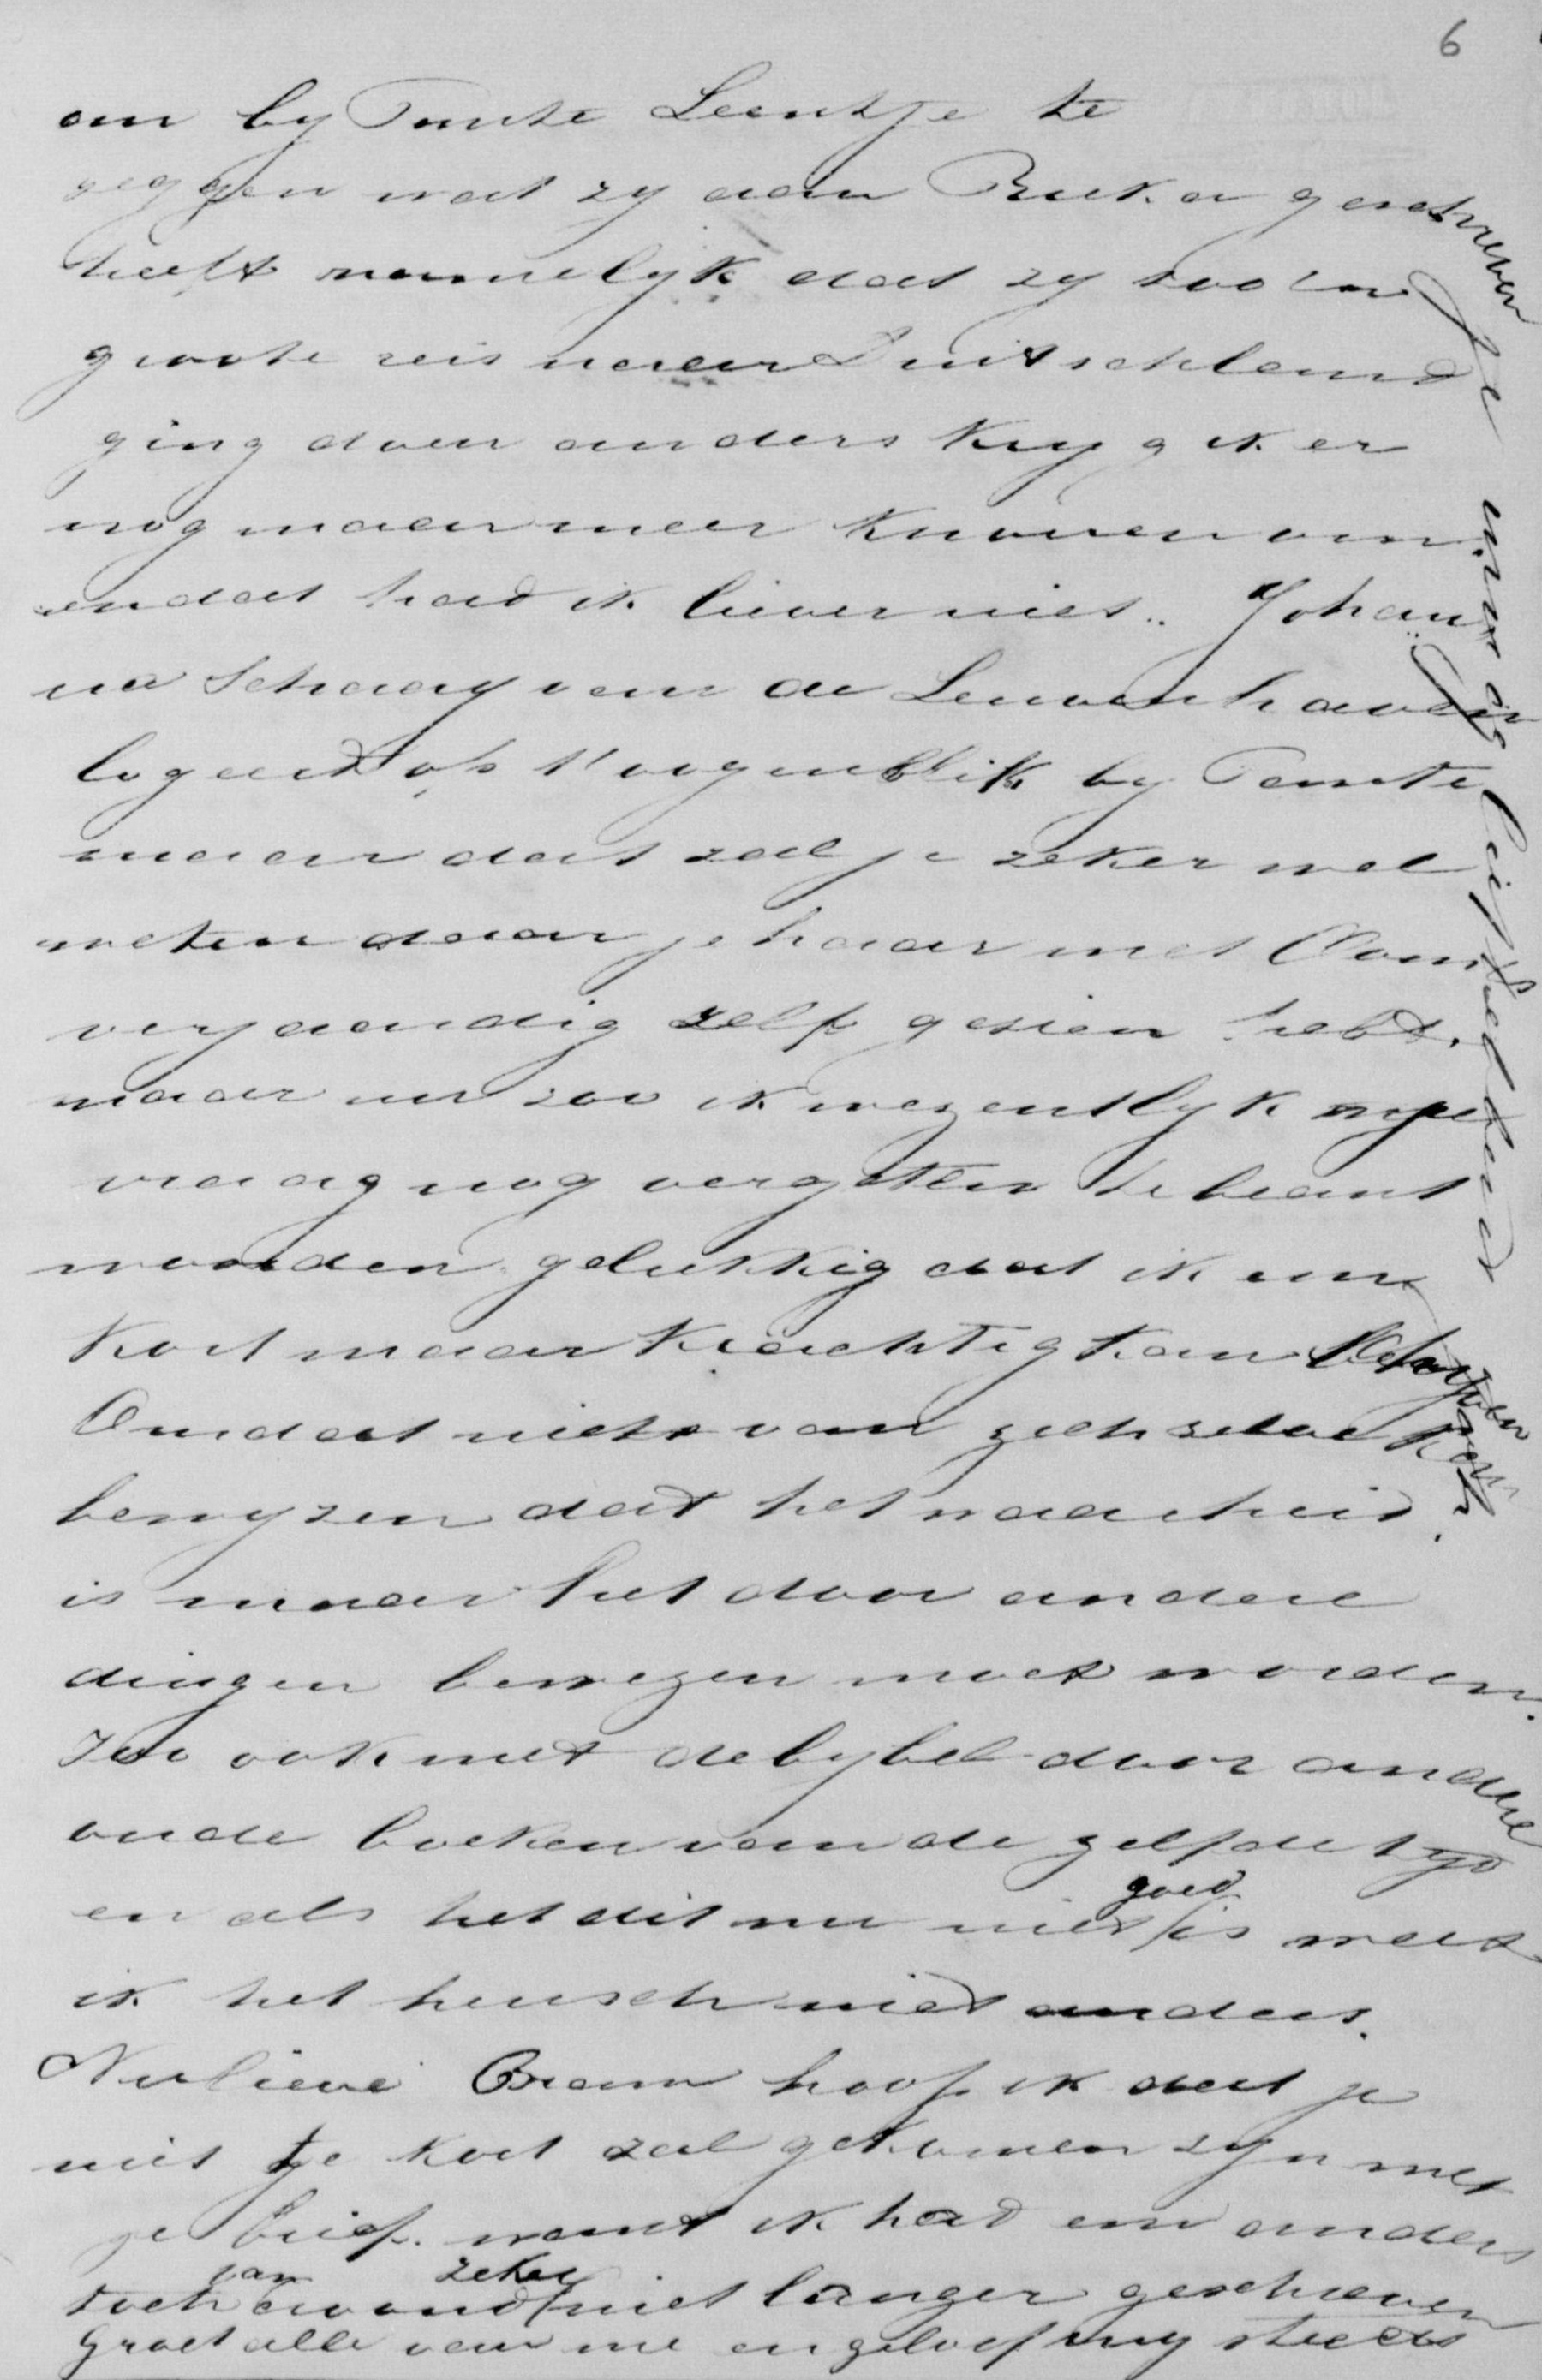 6
om by Tante Leentje te
zeggen wat zy aan Buk geschreven
heeft namelyk dat zy zoo'n
groote reis naar Duitschland
ging doen anders kryg ik er
nog maar meer knorren om.
en dat had ik liever niet.. Johan
na Schaay van de Leuvenhaven
logeerd op 't oogenblik by Tante
maar dat zal je zeker wel
weten daar je haar met Oom
verjaardig zelf gezien hebt.
maar nu zou ik wezentlyk
vraag nog vergeten te beant
woorden gelukkig dat ik nu
kort maar krachtig kan
Omdat niets van zich zelve kan
bewyzen dat het waarheid
is maar het door andere
dingen bewezen moet worden.
Zoo ook met de bybel door andere
oude boeken van de zelfde tyd
en als het dit nu niet goed is weet
ik het heusch niet anders.
Nu lieve Bram hoop ik dat je
niet te kort zal gekomen zyn met
je brief. want ik had een anders
toch van avond zeker niet langer geschreven
Groet alle van me en geloof my steeds
Je liefhebbende